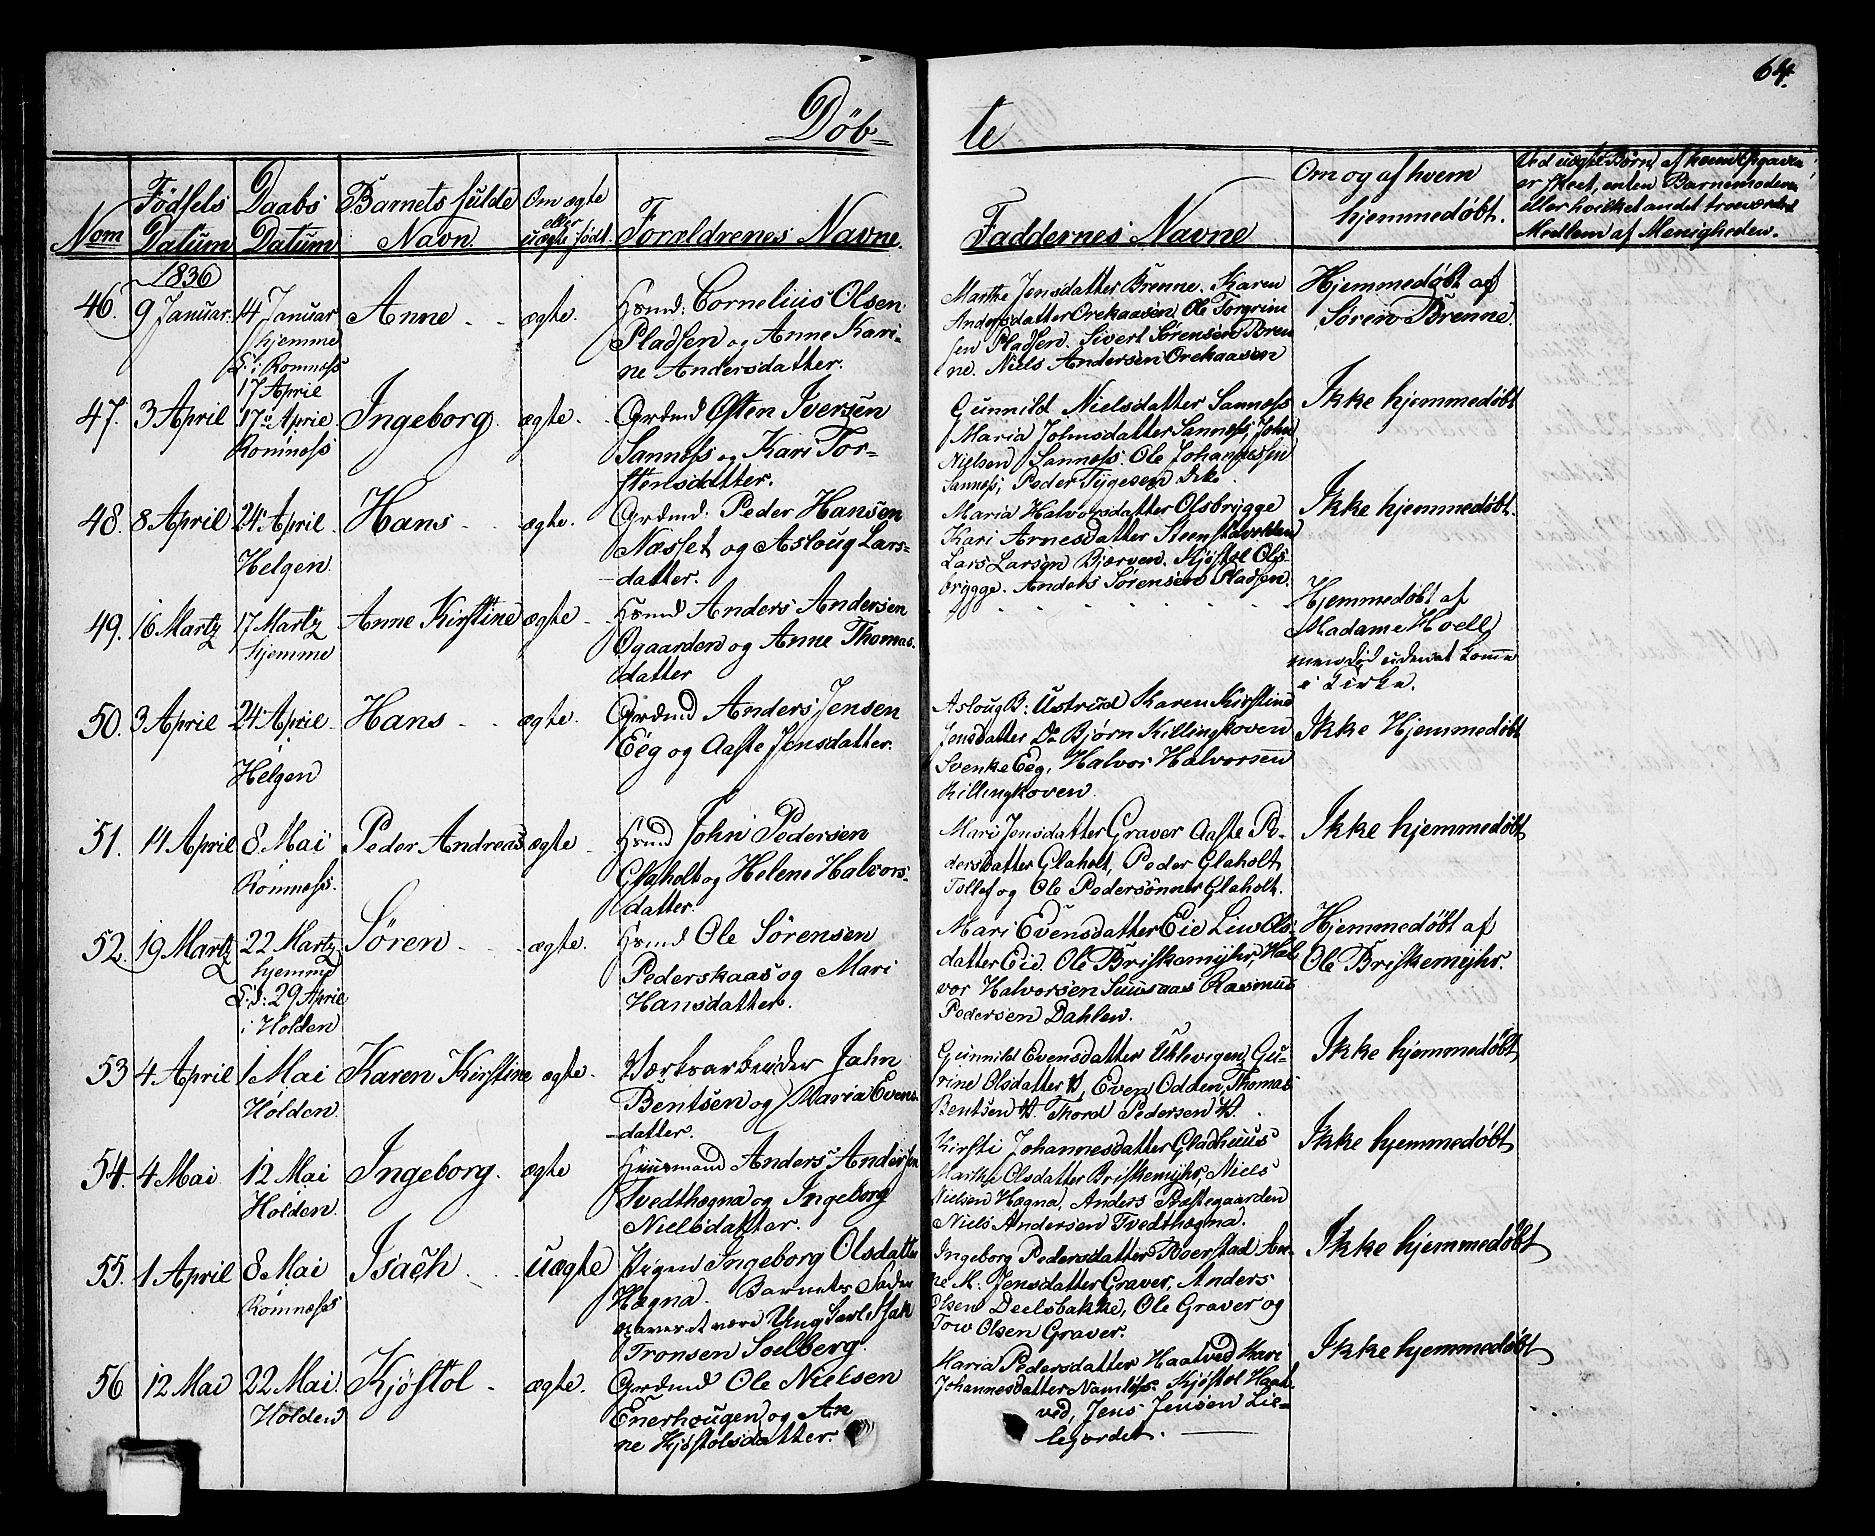 64.
Döb-
te
Nom
Födsels Datum
Daabs Datum
Barnets fulde Navn
Om ægte eller uægte födt.
Forældrenes Navne.
Faddernes Navne
Om og af hvem hjemmedøbt.
Ved uægte Børn, af hvem Opgaven
er skeet, enten Barnemoderen
eller hvilket andet troeværdet
Medlem af Menigheden.
1836
46. 9 Januar. 14 Januar Anne ægte. Hsmd: Cornelius Olsen
hjemme Pladsen og Anne Kari-
i Romness ne Andersdatter.
17 April
Marthe Jensdatter Brenne. Karen
Andersdatter Orekaasen, Ole Torgrim
sen Pladsen. Sivert Sørensen Bren
ne. Niels Andersen Orekaasen
Hjemmedøbt af
Søren Brenne.
47. 3 April 17de April Ingeborg. ægte. Grdmd Østen Iversen
Romness Sanness og Kari Tor-
stensdatter.
Gunnild Nielsdatter Sanness
Maria Johnsdatter Sanness, John
Nielsen Sanness. Ole Johannessen
Sanness, Peder Tygesen
Ikke hjemmedøbt
48. 8 April 24 April Hans ægte. Grdmd. Peder Hansen
Helgen. Næsset og Aslaug Lars-
datter.
Maria Halvorsdatter Olsbrygge
Kari Arnesdatter Steenstavolden
Lars Larsen Bjerven. Kjøstol Ols
brygge. Anders Sørensen Pladsen.
Ikke hjemmedøbt.
49. 16 Martz 17 Martz Anne Kirstine ægte Hsmd Anders Andersen
hjemme Ogaarden og Anne Thomas-
datter
Hjemmedøbt af
Madame Hoell
men død uden at komme
i Kirke.
50. 3 April 24 April Hans ægte. Grdmd Anders Jensen
i
Helgen Eeg og Aaste Jensdatter.
Aslaug B: Ustrud Karen Kirstine
Jensdatter Do Bjørn Killingkoven
Svenke Eeg, Halvor Halvorsen
Killingkoven.
Ikke Hjemmedøbt
51. 14 April 8 Mai Peder Andreas ægte Hsmd John Pedersen
Romness. Glaholt og Helene Halvors-
datter.
Mari Jensdatter Graver Aaste Pe-
dersdatter Glaholt, Peder Glaholt
Tollef og Ole Pedersønner Glaholt.
Ikke hjemmedøbt
52. 19 Martz 22 Martz Søren ægte. Hsmd Ole Sörensen
hjemme Pederskaas og Mari
29 April Hansdatter.
i Holden
Mari Evensdatter Eie Liv Ols-
datter Eie. Ole Briskemyhr, Hal
vor Halvorsen Suusaas Rasmus
Pedersen Dahlen.
Hjemmedøbt af
Ole Briskemyhr.
53 4 April 1 Mai Karen Kirstine ægte. Værksarbeider Jahn
Holden. Bentsen og Maria Evens-
datter.
Gunnild Evensdatter Uhlevigen, Gu-
rine Olsdatter , Even Odden, Thomas
Bentsen . Thord Pedersen .
Ikke hjemmedøbt
54. 4 Mai 12 Mai Ingeborg. ægte Huusmand Anders Andersen
Holden. Tvedthægna og Ingeborg
Nielsdatter.
Kirsti Johannesdatter Gladhuus
Marthe Olsdatter Briskemyhr, Niels
Nielsen Hægna, Anders Præstegaarden
Niels Andersen Tvedthægna.
Ikke hjemmedøbt
55. 1 April 8 Mai Isach uægte Pigen Ingeborg Olsdatter
Romness Hægna. Barnets Fader
opgivet at være Ungkarl Isak
Tronsen Solberg.
Ingeborg Pedersdatter Boerstad An-
ne M: Jensdatter Graver, Anders
Olsen Deelsbakke, Ole Graver og
Tow Olsen Graver.
Ikke hjemmedøbt
56 12 Mai 22 Mai Kjøstol ægte. Grdmd Ole Nielsen
Holden Enerhougen og An
ne Kjøstolsdatter.
Maria Pedersdatter Haatved Kari
Johannesdatter Namløss. Kjøstol Haat-
ved, Jens Jensen Lie-
legordet.
Ikke hjemmedøbt